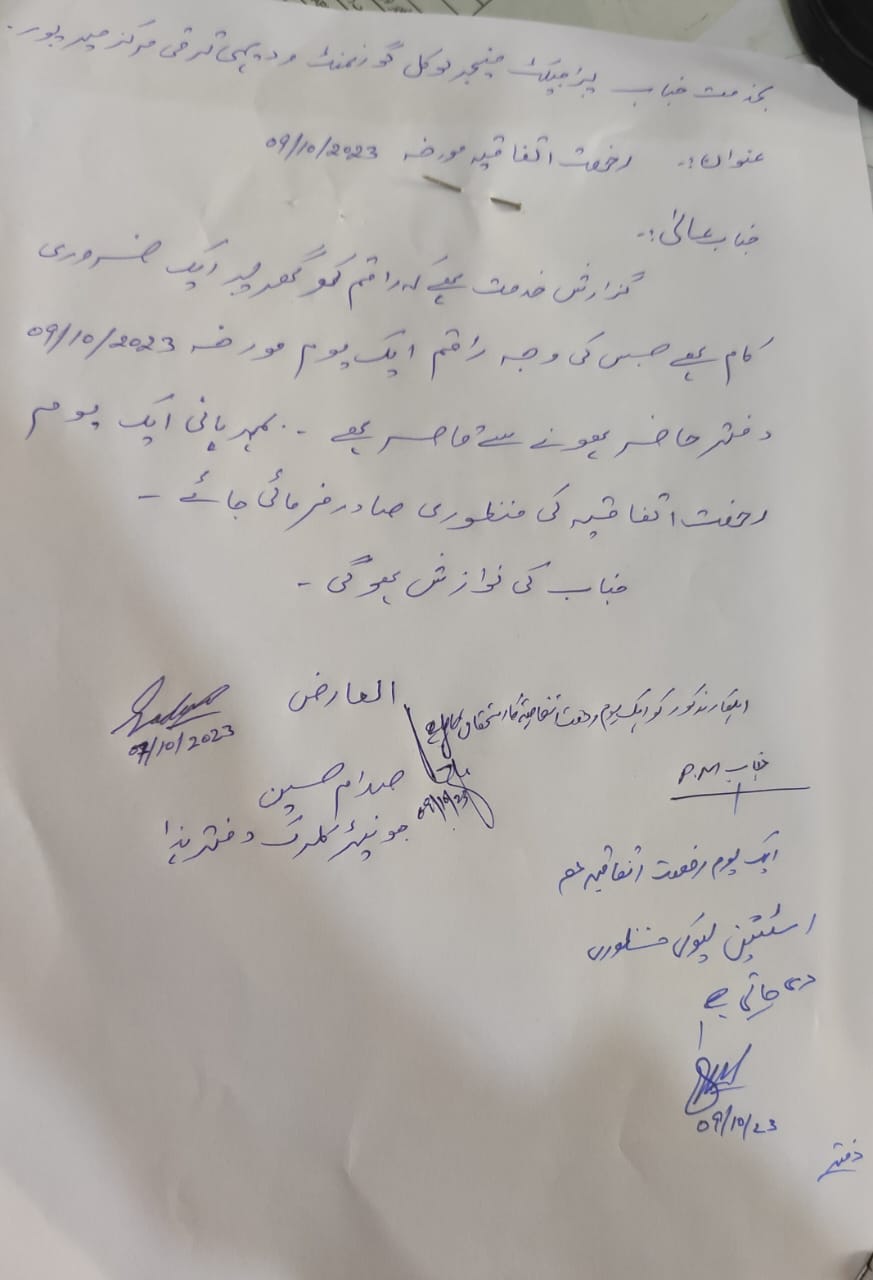 بخدمت جناب پراجیکٹ منیجر لوکل گورنمنٹ و دیہی ترقی مرکز میرپور۔
عنوان:۔ رخصت اتفاقیہ مورخہ 09/10/2023
جناب عالیٰ:۔
گزارش خدمت ہیکہ راقم کو گھر پر ایک ضروری
کام ہے جس کی وجہ راقم ایک یوم مورخہ 09/10/2023
دفتر حاضر ہونے سے قاصر ہے ۔ بمہربانی ایک یوم
رخصت اتفاقیہ کی منظوری صادر فرمائی جائے ۔
جناب کی نوازش ہوگی ۔
العارض
07/10/2023
صدام حسین
جونیئر کلرک دفتر ہذا
اہلکار مذکور کو ایک یوم رخصت اتفاقیہ کا استحقاق
09/10/23
جناب P.M
ایک یوم رخصت اتفاقیہ معہ
اسٹیشن لیو کی منظوری
دی جاتی ہے
09/10/23
دفتر